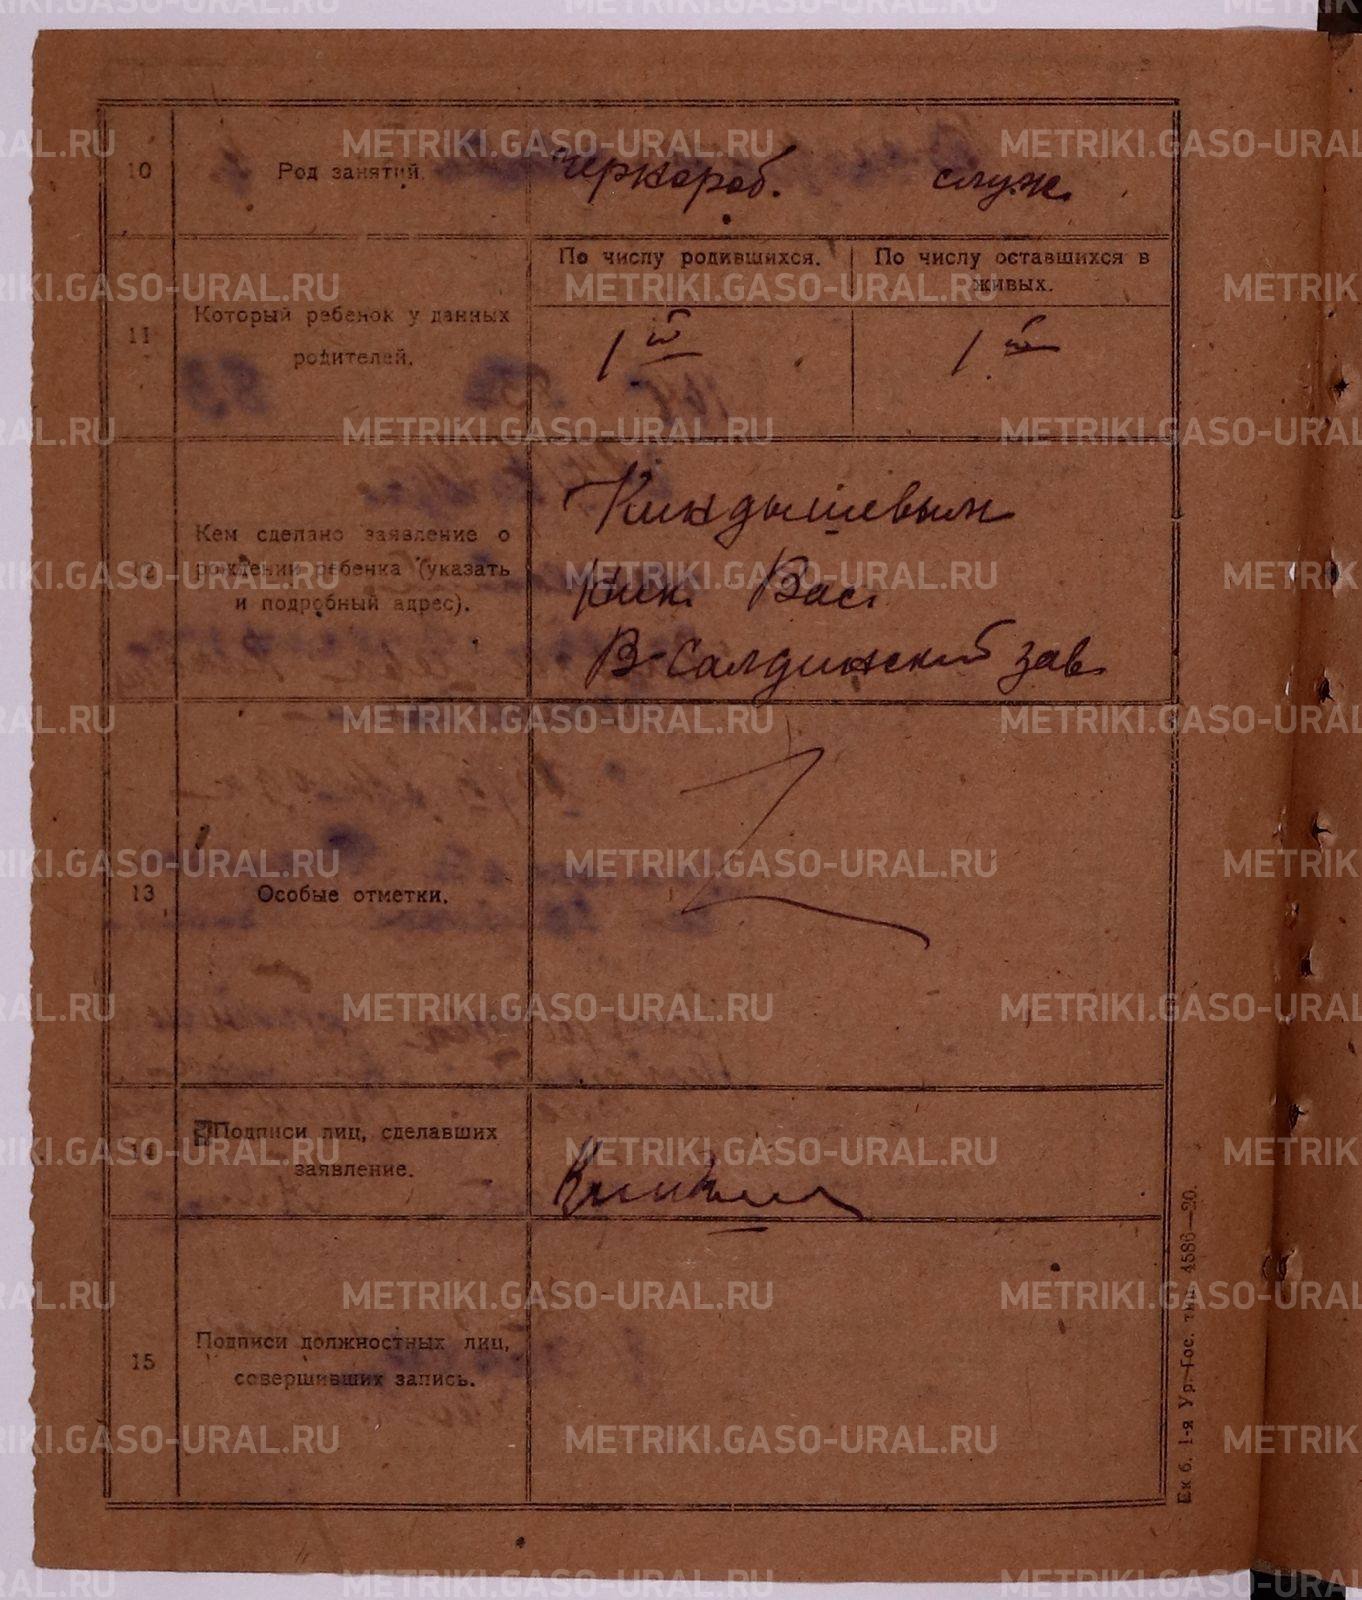 10 Род занятий. чернораб. служ.
По числу родившихся. По числу оставшихся в
живых.
11 Который ребенок у данных
родителей.
1й 1й
12 Кем сделано заявление о
рождении ребенка (указать
и подробный адрес).
Киндышевым
Ник. Вас.
В-Салдинский зав.
13 Особые отметки.
14 Подписи лиц, сделавших
заявление.
15 Подписи должностных лиц,
совершивших запись.
Ек б. 1-я Ур. Гос. тип. 4586—20.
METRIKI.GASO-URAL.RU